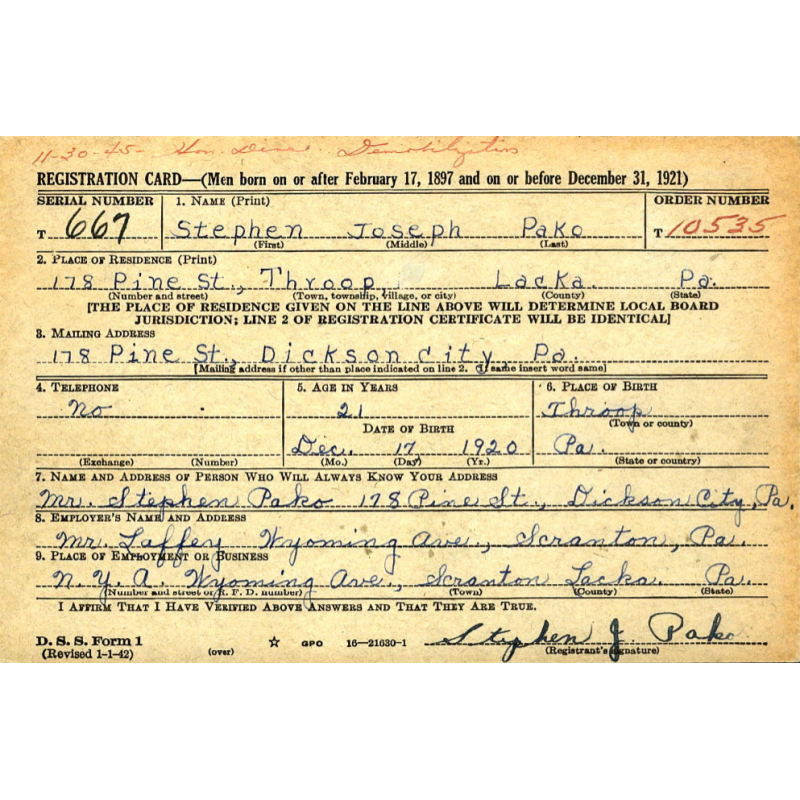 11-30-45- Hon. Disc. Demobilization
REGISTRATION CARD—(Men born on or after February 17, 1897 and on or before December 31, 1921)
SERIAL NUMBER 1. NAME (Print) ORDER NUMBER
T 667 Stephen Joseph Pako T 10535
(First) (Middle) (Last)
2. PLACE OF RESIDENCE (Print)
178 Pine St., Throop Lacka. Pa.
(Number and street) (Town, township, village, or city) (County) (State)
[THE PLACE OF RESIDENCE GIVEN ON THE LINE ABOVE WILL DETERMINE LOCAL BOARD
JURISDICTION; LINE 2 OF REGISTRATION CERTIFICATE WILL BE IDENTICAL]
3. MAILING ADDRESS
178 Pine St., Dickson City, Pa.
[Mailing address if other than place indicated on line 2. If same insert word same]
4. TELEPHONE 5. AGE IN YEARS 6. PLACE OF BIRTH
No 21 Throop
(Town or county)
DATE OF BIRTH
Dec. 17 1920 Pa.
(Exchange) (Number) (Mo.) (Day) (Yr.) (State or country)
7. NAME AND ADDRESS OF PERSON WHO WILL ALWAYS KNOW YOUR ADDRESS
Mr. Stephen Pako 178 Pine St., Dickson City, Pa.
8. EMPLOYER'S NAME AND ADDRESS
Mr. Laffey Wyoming Ave., Scranton, Pa.
9. PLACE OF EMPLOYMENT OR BUSINESS
N.Y.A. Wyoming Ave., Scranton Lacka. Pa.
(Number and street or R. F. D. number) (Town) (County) (State)
I AFFIRM THAT I HAVE VERIFIED ABOVE ANSWERS AND THAT THEY ARE TRUE.
D. S. S. Form 1
(Revised 1-1-42) (over) ☆ GPO 16—21630-1 Stephen J. Pako
(Registrant's signature)